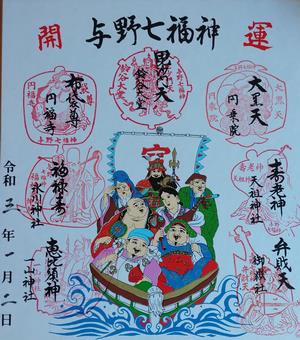 開 与野七福神 運
大黒天
円乗院
寿老神
天祖神社
弁財天
御嶽社
毘沙門天
鈴谷大堂
宝
布袋尊
円福寺
福禄寿
氷川神社
恵比須神
一山神社
令和三年一月二日